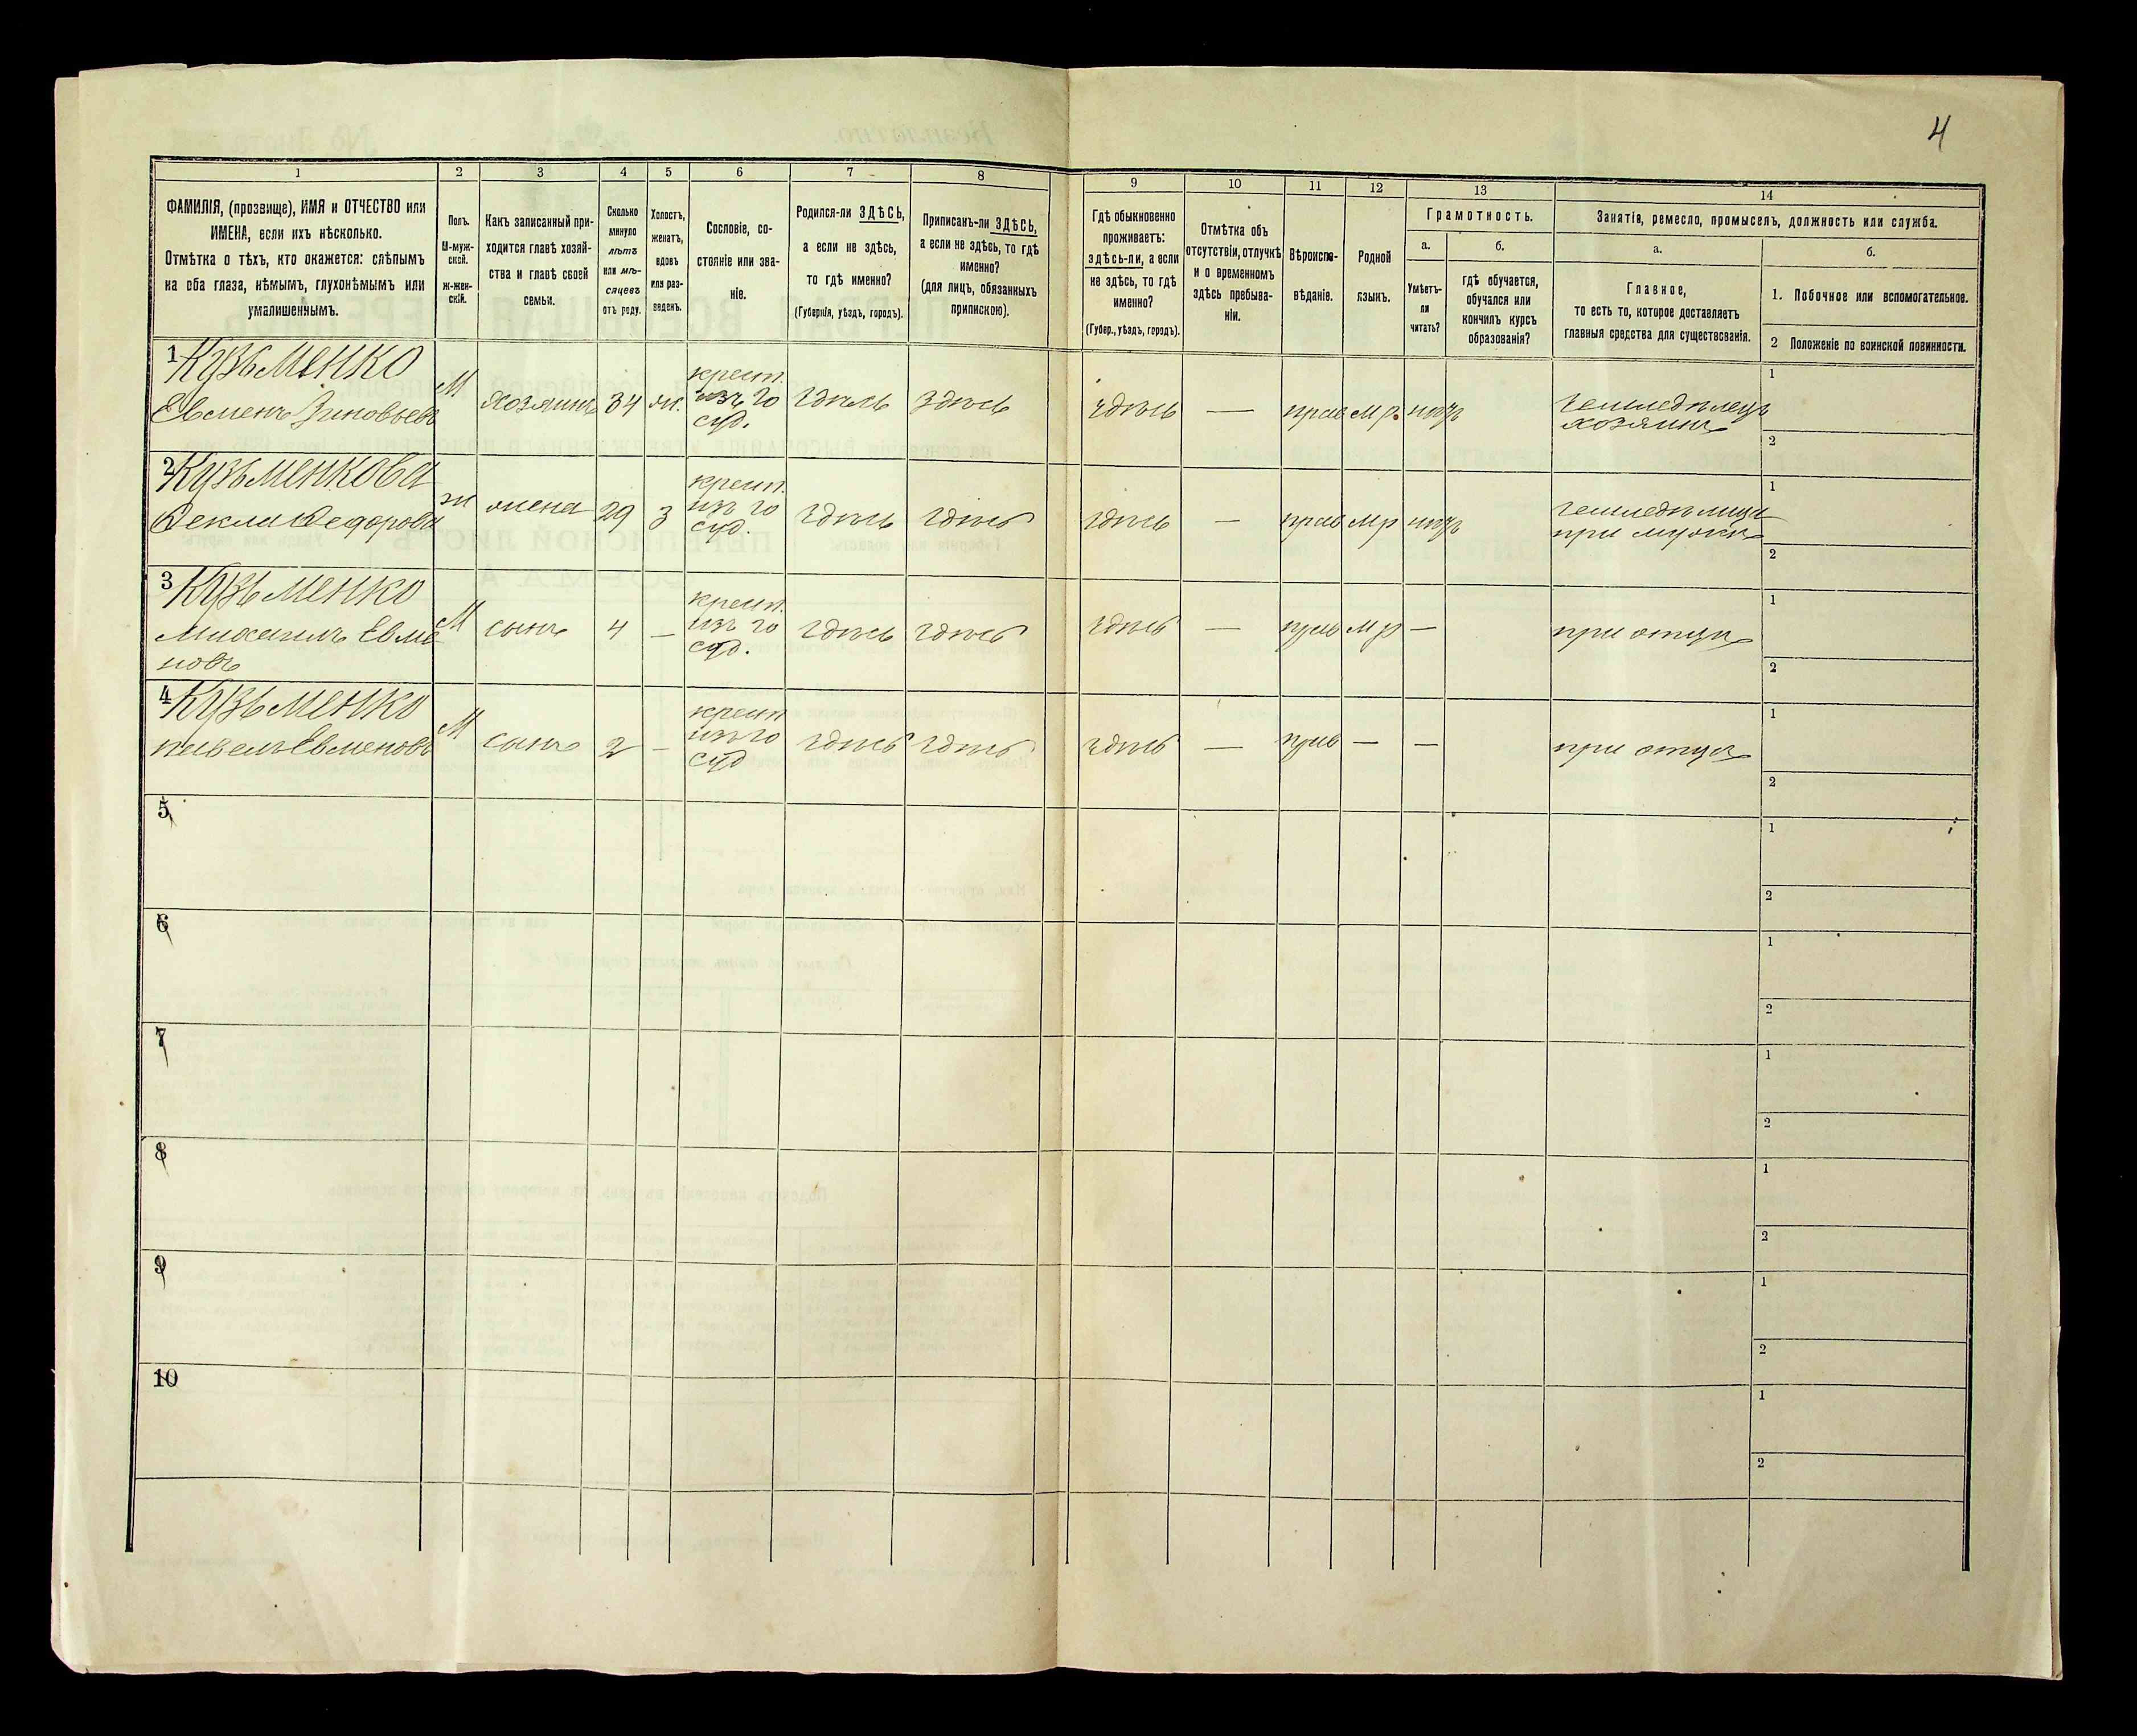 4
1 2 3 4 5 6 7 8 9 10 11 12 13 14
ФАМИЛІЯ, (прозвище), ИМЯ и ОТЧЕСТВО или
ИМЕНА, если ихъ нѣсколько.
Отмѣтка о тѣхъ, кто окажется: слѣпымъ
на оба глаза, нѣмымъ, глухонѣмымъ или
умалишеннымъ.
Полъ.
М-муж-
ской.
Ж-жен-
скій.
Какъ записанный при-
ходится главѣ хозяй-
ства и главѣ своей
семьи.
Сколько
минуло
лѣтъ
или мѣ-
сяцевъ
отъ роду.
Холостъ,
женатъ,
вдовъ
или раз-
веденъ.
Сословіе, со-
стояніе или зва-
ніе.
Родился-ли ЗДѢСЬ,
а если не здѣсь,
то гдѣ именно?
(Губернія, уѣздъ, городъ).
Приписанъ-ли ЗДѢСЬ,
а если не здѣсь, то гдѣ
именно?
(для лицъ, обязанныхъ
припискою).
Гдѣ обыкновенно
проживаетъ:
здѣсь-ли, а если
не здѣсь, то гдѣ
именно?
(Губер., уѣздъ, городъ).
Отмѣтка объ
отсутствіи, отлучкѣ
и о временномъ
здѣсь пребыва-
ніи.
Вѣроиспо-
вѣданіе.
Родной
языкъ.
Грамотность.
а.
Умѣетъ-
ли
читать?
б.
гдѣ обучается,
обучался или
кончилъ курсъ
образованія?
Занятія, ремесло, промыселъ, должность или служба.
а.
Главное,
то есть то, которое доставляетъ
главныя средства для существованія.
б.
1. Побочное или вспомогательное.
2 Положеніе по воинской повинности.
1 Кузьменко
Евменъ Зиновьевъ
М хозяинъ 34 ж.
крест.
изъ го
суд.
здѣсь здѣсь здѣсь — прав м р. нѣтъ
земледѣлецъ
хозяинъ
1
2
2 Кузьменкова
Фекла Федорова
ж жена 29 з
крест.
изъ го
суд.
здѣсь здѣсь здѣсь — прав м р нѣтъ
земледѣлица
при мужѣ
1
2
3 Кузьменко
Михаилъ Евме
новъ
М сынъ 4 —
крест.
изъ го
суд.
здѣсь здѣсь здѣсь — прав м р —
при отцѣ
1
2
4 Кузьменко
павелъ Евменовъ
М сынъ 2 —
крест
изъ го
суд
здѣсь здѣсь здѣсь — прав — —
при отцѣ
1
2
5
1
2
6
1
2
7
1
2
8
1
2
9
1
2
10
1
2